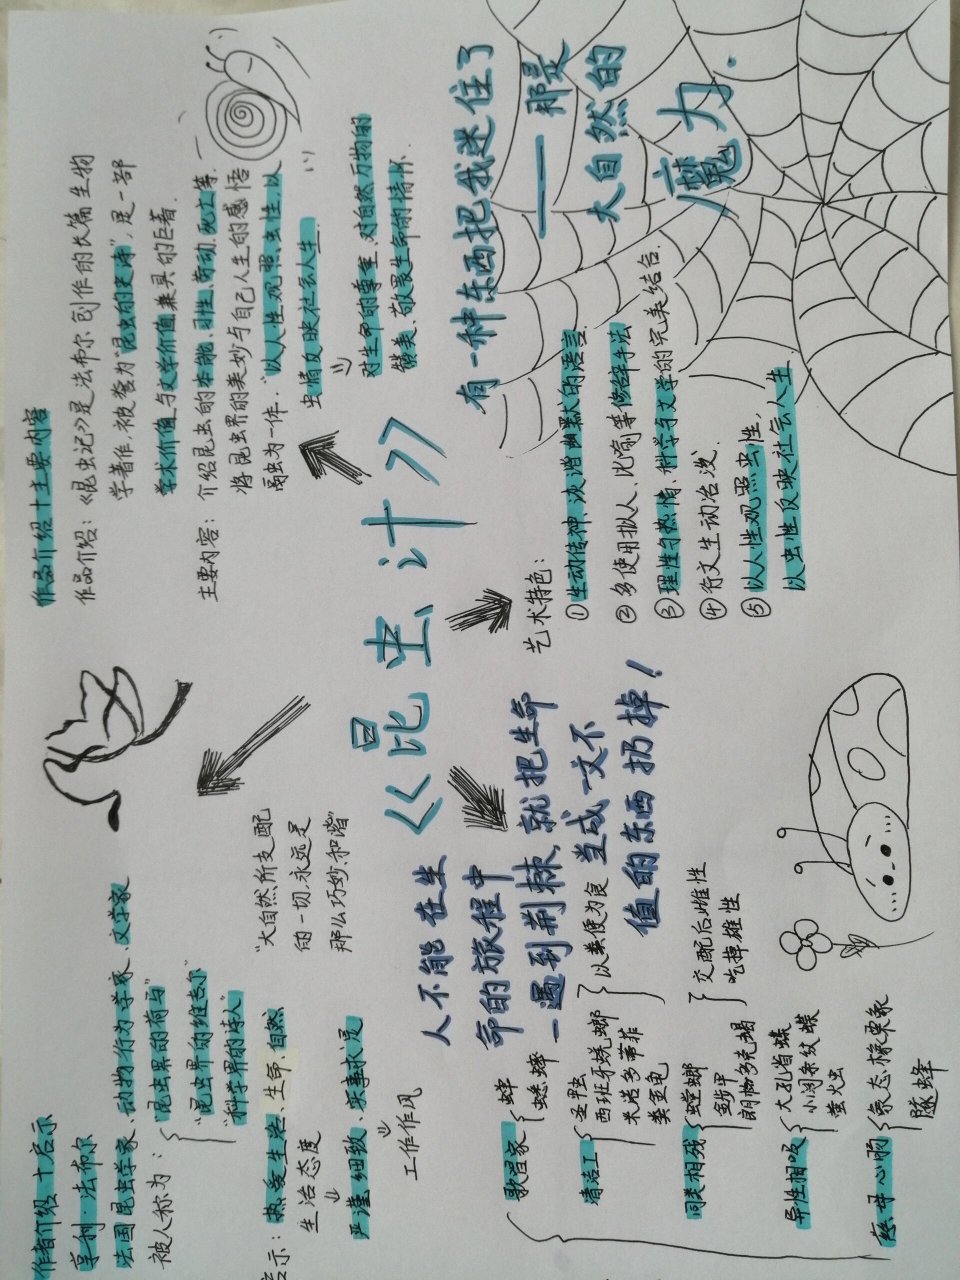 作者介绍+启示
亨利·法布尔
法国昆虫学家、动物行为学家、文学家
被人称为：
“昆虫界的荷马”
“昆虫界的维吉尔”
“科学界的诗人”
启示：热爱生活、生命、自然
生活态度
严谨细致、实事求是
工作作风
“大自然所支配
的一切，永远是
那么巧妙、和谐”
作品介绍+主要内容
作品介绍：《昆虫记》是法布尔创作的长篇生物
学著作，被誉为“昆虫的史诗”，是一部
学术价值与文学价值兼具的巨著.
主要内容：介绍昆虫的本能、习性、劳动、死亡等.
将昆虫界的美妙与自己人生的感悟
融为一体.“以人性观照虫性，以
虫情反映社会人生.
对生命的尊重，对自然万物的
赞美、敬畏生命的情怀.
《昆虫记》
有一种东西把我迷住了
——那是
大自然的
魔力.
人不能在生
命的旅程中
一遇到荆棘,就把生命
当成一文不
值的东西扔掉！
艺术特色：
①生动传神、诙谐幽默的语言.
②多使用拟人、比喻等修辞手法
③理性与热情、科学与文学的完美结合.
④行文生动活泼.
⑤以人性观照虫性，
以虫性反映社会人生
歌唱家
蝉
蟋蟀
清洁工
圣甲虫
西班牙蜣螂
米诺多蒂菲
粪金龟
以粪便为食
同类相残
螳螂
金步甲
朗格多克蝎
交配后雌性
吃掉雄性
异性相吸
大孔雀蝶
小阔条纹蝶
萤火虫
慈母心肠
象态橡栗象
隧蜂